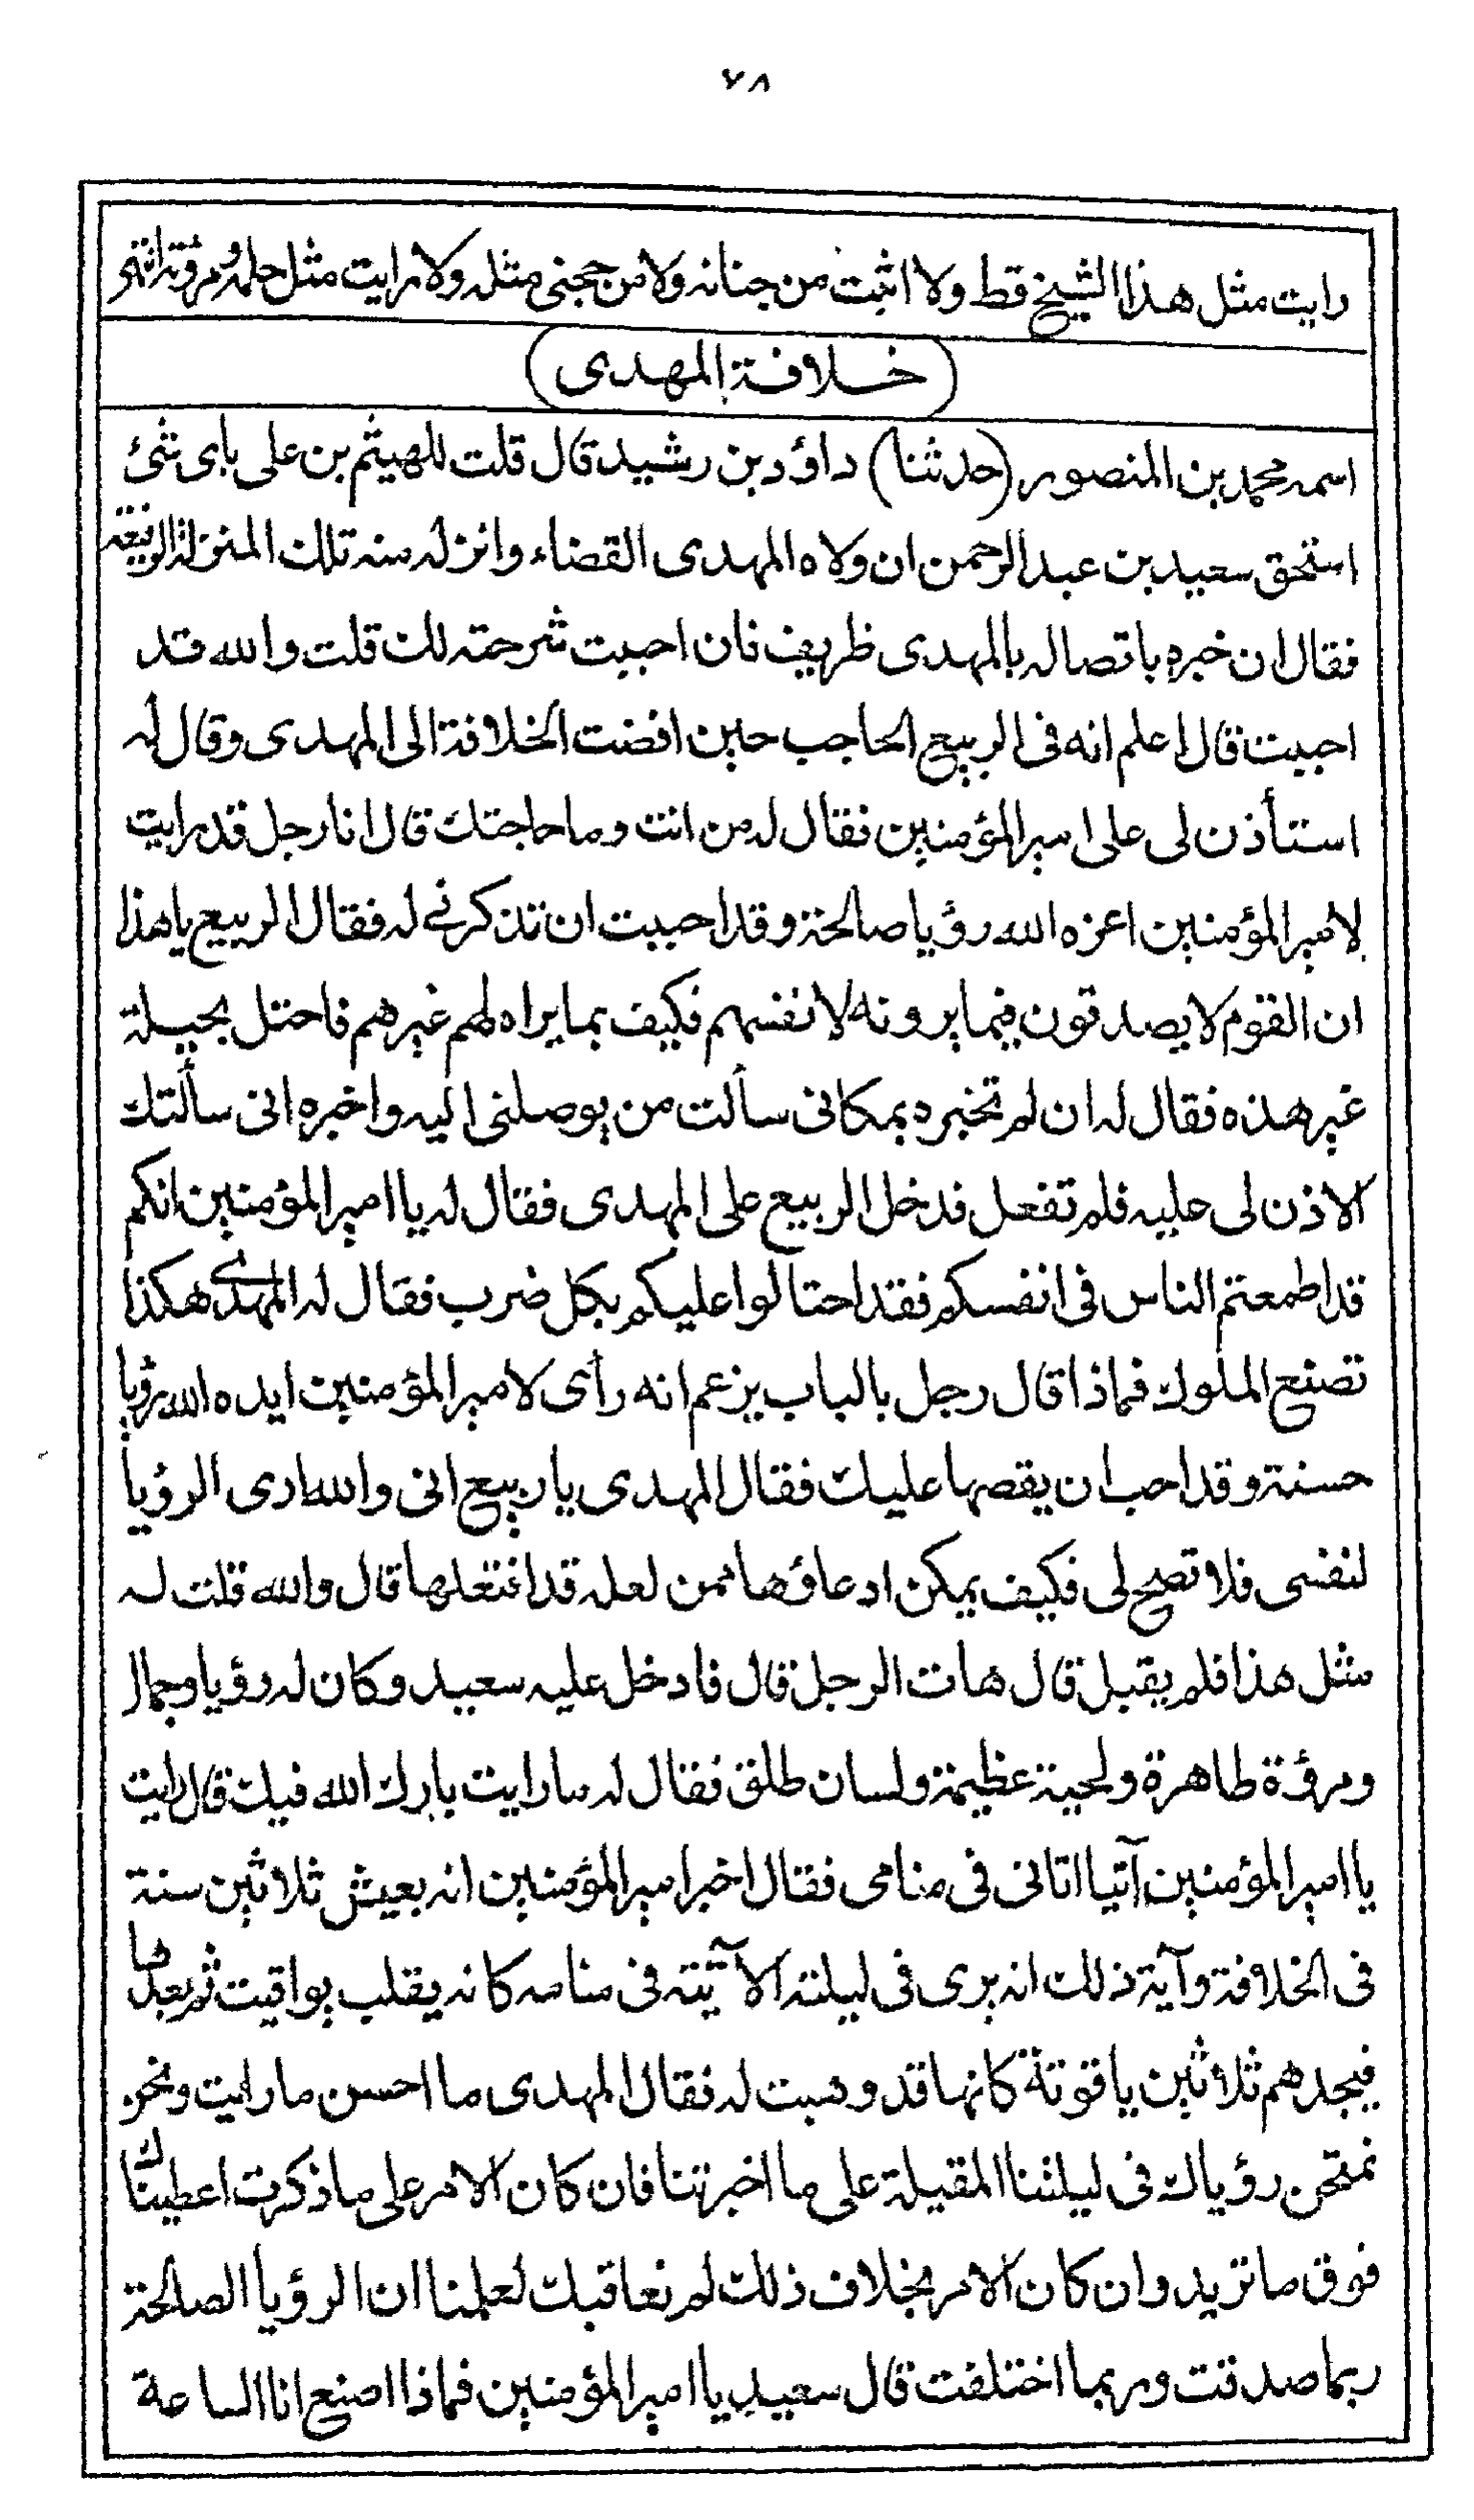 ٧٨
رايت مثل هذا الشيخ قط ولا اثبت من جنانه ولا من حجنى مثله ولا رايت مثل حلمه ومرؤته انتهى
(خلافة المهدى)
اسمه محمد بن المنصور (حدثنا) داؤد بن رشيد قال قلت للهيثم بن على باى شئ
استحق سعيد بن عبد الرحمن ان ولاه المهدى القضاء وانزله منه تلك المنزلة الرفيعة
فقال ان خبره باتصاله بالمهدى ظريف فان احببت شرحته لك قلت والله قد
احببت قال اعلم انه فى الربيع الحاجب حين افضت الخلافة الى المهدى وقال له
استأذن لى على امير المؤمنين فقال له من انت وما حاجتك قال انا رجل قد رايت
لامير المؤمنين اعزه الله رؤيا صالحة وقد احببت ان تذكرنے له فقال الربيع ياهذا
ان القوم لا يصدقون فيما يرونه لانفسهم فكيف بما يراه لهم غيرهم فاحتل بحيلة
غير هذه فقال له ان لم تخبره بمكانى سألت من يوصلنى اليه واخبره انى سألتك
الاذن لى عليه فلم تفعل فدخل الربيع على المهدى فقال له يا امير المؤمنين انكم
قد اطمعتم الناس فى انفسكم فقد احتالوا عليكم بكل ضرب فقال له المهدى هكذا
تصنع الملوك فماذا قال رجل بالباب يزعم انه رأى لامير المؤمنين ايده الله رؤيا
حسنة وقد احب ان يقصها عليك فقال المهدى يا ربيع انى والله ارى الرؤيا
لنفسى فلا تصح لى فكيف يمكن ادعاؤها ممن لعله قد افتعلها قال والله قلت له
مثل هذا فلم يقبل قال هات الرجل قال فادخل عليه سعيد وكان له رؤيا وجمال
ومرؤة طاهرة ولحية عظيمة ولسان طلق فقال له ما رايت بارك الله فيك قال رايت
يا امير المؤمنين آتيا اتانى فى منامى فقال اخبر امير المؤمنين انه يعيش ثلاثين سنة
فى الخلافة وآية ذلك انه يرى فى ليلته الآتيته فى منامه كانه يقلب يواقيت ثم يعدها
فيجدهم ثلاثين ياقوتة كانها قد وهبت له فقال المهدى ما احسن ما رايت ونحن
نمتحن رؤياك فى ليلتنا المقبلة على ما اخبرتنا فان كان الامر على ما ذكرت اعطيناك
فوق ما تريد وان كان الامر بخلاف ذلك لم نعاقبك لعلمنا ان الرؤيا الصالحة
ربما صدقت وربما اختلفت قال سعيد يا امير المؤمنين فماذا اصنع انا الساعة